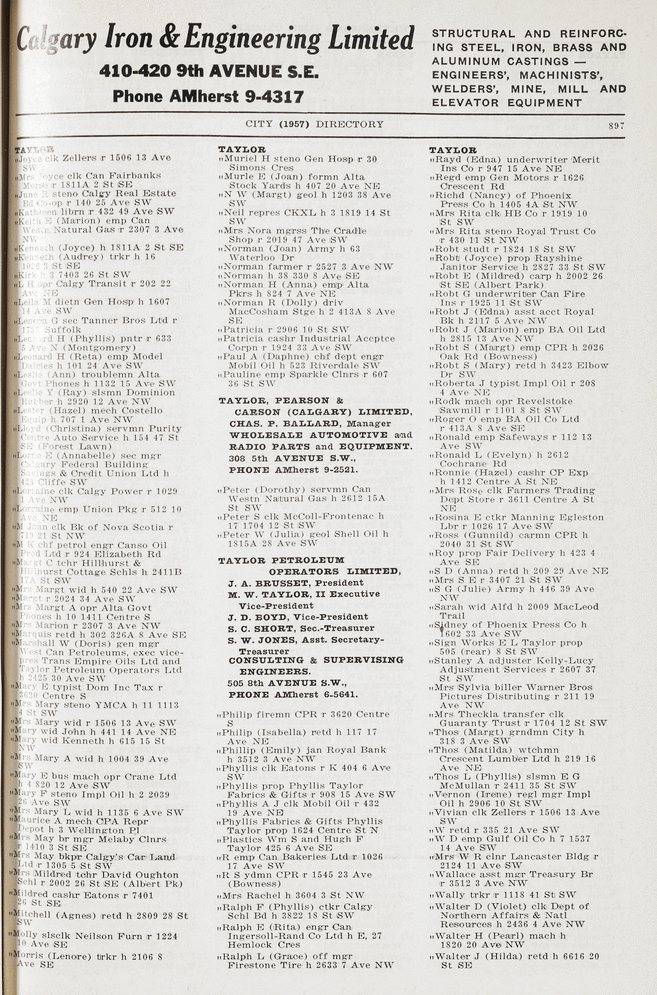 Calgary Iron & Engineering Limited
410-420 9th AVENUE S.E.
Phone AMherst 9-4317
STRUCTURAL AND REINFORC-
ING STEEL, IRON, BRASS AND
ALUMINUM CASTINGS —
ENGINEERS', MACHINISTS',
WELDERS', MINE, MILL AND
ELEVATOR EQUIPMENT
CITY (1957) DIRECTORY 897
TAYLOR
"Joyce clk Zellers r 1506 13 Ave
SW
"Mrs Joyce clk Can Fairbanks
r 1811A 2 St SE
"June R steno Calgy Real Estate
Bd Co-op r 140 25 Ave SW
"Kathleen librn r 432 49 Ave SW
"Keith E (Marion) emp Can
Westn Natural Gas r 2307 3 Ave
NW
"Kenneth (Joyce) h 1811A 2 St SE
"Kenneth (Audrey) trkr h 16
St SE
"Kirk h 7403 26 St SW
"L R opr Calgy Transit r 202 22
Ave NE
"Leila M dietn Gen Hosp h 1607
Ave SW
"Lenora G sec Tanner Bros Ltd r
Suffolk
"Leonard H (Phyllis) pntr r 633
5 Ave N (Montgomery)
"Leonard H (Reta) emp Model
Dairies h 101 24 Ave SW
"Leslie (Ann) troublemn Alta
Govt Phones h 1132 15 Ave SW
"Leslie Y (Ray) slsmn Dominion
Rubber h 2920 12 Ave NW
"Lester (Hazel) mech Costello
Equip h 707 1 Ave NW
"Lloyd (Christina) servmn Purity
Centre Auto Service h 154 47 St
SE (Forest Lawn)
"Lorne E (Annabelle) sec mgr
Calgary Federal Building
Savings & Credit Union Ltd h
Cliffe SW
"Lorraine clk Calgy Power r 1029
1 Ave NW
"Lorraine emp Union Pkg r 512 10
Ave NE
"M Jean clk Bk of Nova Scotia r
719 21 St NW
"M K chf petrol engr Canso Oil
Prod Ltd r 924 Elizabeth Rd
"Margt C tchr Hillhurst &
Hillhurst Cottage Schls h 2411B
17A St SW
"Mrs Margt wid h 540 22 Ave SW
"Margt r 2024 34 Ave SW
"Mrs Margt A opr Alta Govt
Phones h 10 1411 Centre S
"Mrs Marion r 2307 3 Ave NW
"Marquis retd h 302 326A 8 Ave SE
"Marshall W (Doris) gen mgr
West Can Petroleums, exec vice-
pres Trans Empire Oils Ltd and
Taylor Petroleum Operators Ltd
h 2425 30 Ave SW
"Mary E typist Dom Inc Tax r
Centre S
"Mrs Mary steno YMCA h 11 1113
4 St SW
"Mrs Mary wid r 1506 13 Ave SW
"Mary wid John h 441 14 Ave NE
"Mary wid Kenneth h 615 15 St
NW
"Mrs Mary A wid h 1004 39 Ave
SW
"Mary E bus mach opr Crane Ltd
h 4 820 12 Ave SW
"Mary F steno Impl Oil h 2 2039
26 Ave SW
"Mrs Mary L wid h 1135 6 Ave SW
"Maurice A mech CPA Repr
Depot h 3 Wellington Pl
"Mrs May br mgr Melaby Clnrs
r 1410 3 St SE
"Mrs May bkpr Calgy's Car Land
Ltd r 1305 5 St SW
"Mrs Mildred tchr David Oughton
Schl r 2002 26 St SE (Albert Pk)
"Mildred cashr Eatons r 7401
26 St SE
"Mitchell (Agnes) retd h 2809 28 St
SW
"Molly slsclk Neilson Furn r 1224
10 Ave SE
"Morris (Lenore) trkr h 2106 8
Ave SE
TAYLOR
"Muriel H steno Gen Hosp r 30
Simons Cres
"Murle E (Joan) formn Alta
Stock Yards h 407 20 Ave NE
"N W (Margt) geol h 1203 38 Ave
SW
"Neil repres CKXL h 3 1819 14 St
SW
"Mrs Nora mgrss The Cradle
Shop r 2019 47 Ave SW
"Norman (Joan) Army h 63
Waterloo Dr
"Norman farmer r 2527 3 Ave NW
"Norman h 38 330 8 Ave SE
"Norman H (Anna) emp Alta
Pkrs h 824 7 Ave NE
"Norman R (Dolly) driv
MacCosham Stge h 2 413A 8 Ave
SE
"Patricia r 2906 10 St SW
"Patricia cashr Industrial Accptce
Corpn r 1924 33 Ave SW
"Paul A (Daphne) chf dept engr
Mobil Oil h 523 Riverdale SW
"Pauline emp Sparkle Clnrs r 607
36 St SW
TAYLOR, PEARSON &
CARSON (CALGARY) LIMITED,
CHAS. P. BALLARD, Manager
WHOLESALE AUTOMOTIVE and
RADIO PARTS and EQUIPMENT.
308 5th AVENUE S.W.,
PHONE AMherst 9-2521.
"Peter (Dorothy) servmn Can
Westn Natural Gas h 2612 15A
St SW
"Peter S clk McColl-Frontenac h
17 1704 12 St SW
"Peter W (Julia) geol Shell Oil h
1815A 28 Ave SW
TAYLOR PETROLEUM
OPERATORS LIMITED,
J. A. BRUSSET, President
M. W. TAYLOR, II Executive
Vice-President
J. D. BOYD, Vice-President
S. C. SHORT, Sec.-Treasurer
S. W. JONES, Asst. Secretary-
Treasurer
CONSULTING & SUPERVISING
ENGINEERS.
505 8th AVENUE S.W.,
PHONE AMherst 6-5641.
"Philip firemn CPR r 3620 Centre
S
"Philip (Isabella) retd h 117 17
Ave NE
"Phillip (Emily) jan Royal Bank
h 3512 3 Ave NW
"Phyllis clk Eatons r K 404 6 Ave
SW
"Phyllis prop Phyllis Taylor
Fabrics & Gifts r 908 15 Ave SW
"Phyllis A J clk Mobil Oil r 432
19 Ave NE
"Phyllis Fabrics & Gifts Phyllis
Taylor prop 1624 Centre St N
"Plastics Wm S and Hugh F
Taylor 425 6 Ave SE
"R emp Can Bakeries Ltd r 1026
17 Ave SW
"R S ydmn CPR r 1545 23 Ave
(Bowness)
"Mrs Rachel h 3604 3 St NW
"Ralph F (Phyllis) ctkr Calgy
Schl Bd h 3822 18 St SW
"Ralph E (Rita) engr Can
Ingersoll-Rand Co Ltd h E, 27
Hemlock Cres
"Ralph L (Grace) off mgr
Firestone Tire h 2633 7 Ave NW
TAYLOR
"Rayd (Edna) underwriter Merit
Ins Co r 947 15 Ave NE
"Regd emp Gen Motors r 1626
Crescent Rd
"Richd (Nancy) of Phoenix
Press Co h 1405 4A St NW
"Mrs Rita clk HB Co r 1919 10
St SW
"Mrs Rita steno Royal Trust Co
r 430 11 St NW
"Robt studt r 1824 18 St SW
"Robt (Joyce) prop Rayshine
Janitor Service h 2827 33 St SW
"Robt E (Mildred) carp h 2002 26
St SE (Albert Park)
"Robt G underwriter Can Fire
Ins r 1925 11 St SW
"Robt J (Edna) asst acct Royal
Bk h 2117 5 Ave NW
"Robt J (Marion) emp BA Oil Ltd
h 2815 13 Ave NW
"Robt S (Margt) emp CPR h 2026
Oak Rd (Bowness)
"Robt S (Mary) retd h 3423 Elbow
Dr SW
"Roberta J typist Impl Oil r 208
4 Ave NE
"Rodk mach opr Revelstoke
Sawmill r 1101 8 St SW
"Roger O emp BA Oil Co Ltd
r 413A 8 Ave SE
"Ronald emp Safeways r 112 13
Ave SW
"Ronald L (Evelyn) h 2612
Cochrane Rd
"Ronnie (Hazel) cashr CP Exp
h 1412 Centre A St NE
"Mrs Rose clk Farmers Trading
Dept Store r 3611 Centre A St
NE
"Rosina E ctkr Manning Egleston
Lbr r 1026 17 Ave SW
"Ross (Gunnild) carmn CPR h
2040 31 St SW
"Roy prop Fair Delivery h 423 4
Ave SE
"S D (Anna) retd h 209 29 Ave NE
"Mrs S E r 3407 21 St SW
"S G (Julie) Army h 446 39 Ave
NW
"Sarah wid Alfd h 2009 MacLeod
Trail
"Sidney of Phoenix Press Co h
1602 33 Ave SW
"Sign Works E L Taylor prop
505 (rear) 8 St SW
"Stanley A adjuster Kelly-Lucy
Adjustment Services r 2607 37
St SW
"Mrs Sylvia biller Warner Bros
Pictures Distributing r 211 19
Ave NW
"Mrs Theckla transfer clk
Guaranty Trust r 1704 12 St SW
"Thos (Margt) grndmn City h
318 3 Ave SW
"Thos (Matilda) wtchmn
Crescent Lumber Ltd h 219 16
Ave NE
"Thos L (Phyllis) slsmn E G
McMullan r 2411 35 St SW
"Vernon (Irene) regl mgr Impl
Oil h 2906 10 St SW
"Vivian clk Zellers r 1506 13 Ave
SW
"W retd r 335 21 Ave SW
"W D emp Gulf Oil Co h 7 1537
14 Ave SW
"Mrs W R clnr Lancaster Bldg r
2124 11 Ave SW
"Wallace asst mgr Treasury Br
r 3512 3 Ave NW
"Wally trkr r 1118 41 St SW
"Walter D (Violet) clk Dept of
Northern Affairs & Natl
Resources h 2436 4 Ave NW
"Walter H (Pearl) mach h
1820 20 Ave NW
"Walter J (Hilda) retd h 6616 20
St SE